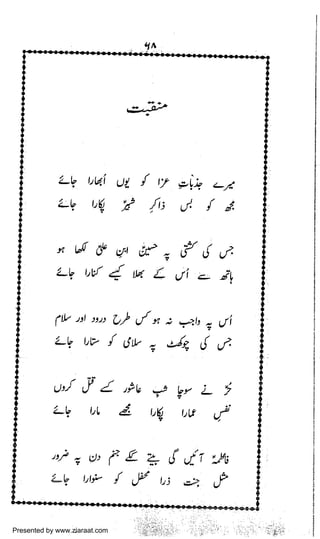 ۶۸
منقبت
میرے جذباتِ عزا کو یوں اُبھارا جائے
مجھ کو بس ذاکرِ شبیرؑ پکارا جائے
جس کی کشتی پہ حسینؑ ابنِ علیؑ لکھا ہو
ہاتھ سے اُس کے بھلا کیسے کنارا جائے
اُس پہ واجب نہ ہو کس طرح درود اور سلام
جس کی چوکھٹ پہ سلامی کو ستارا جائے
حُرؑ نے سوچا شبِ عاشور کسے قتل کروں
نفس عمارا پکارا مجھے مارا جائے
فاطمہؑ آئیں گی بیٹے کے جنم دن پہ ضرور
مثلِ جنت ذرا محفل کو سنوارا جائے
Presented by www.ziaraat.com